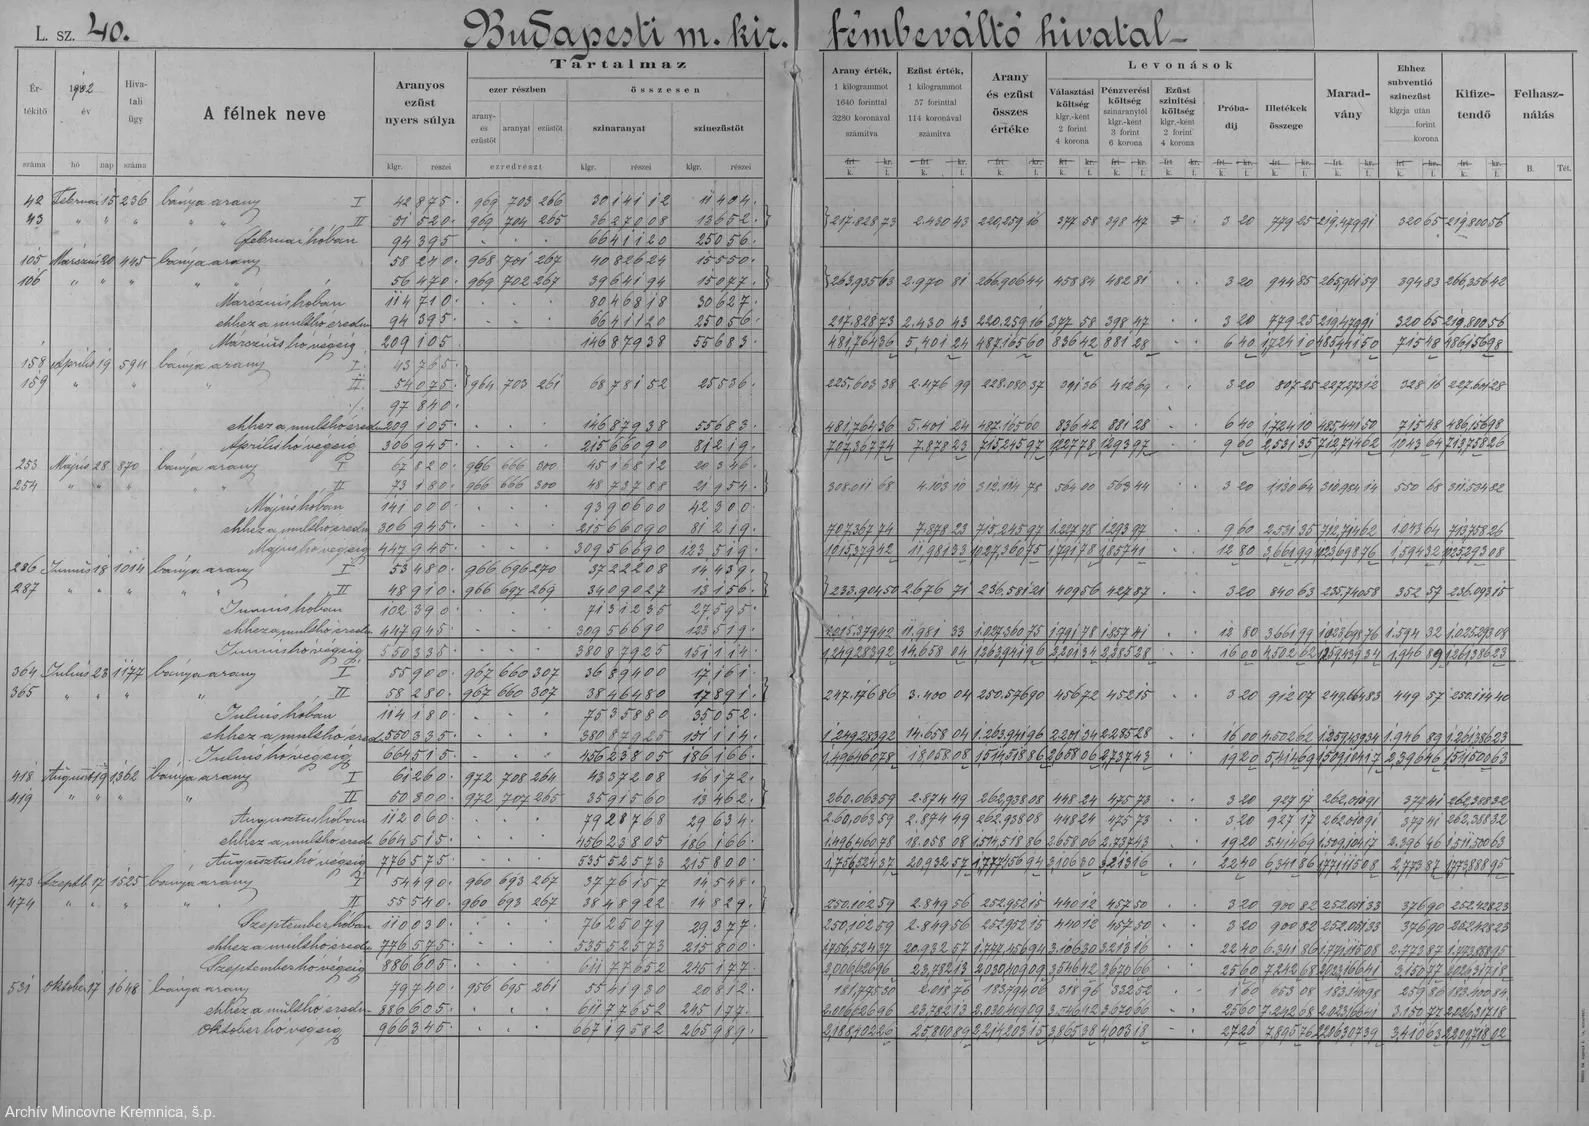 L. sz. 40. Budapesti m. kir. fémbeváltó hivatal
Értékitő száma
1902 év
hó nap
Hivatali ügy száma
A félnek neve
Aranyos ezüst nyers súlya
klgr. részei
Tartalmaz
ezer részben
arany- és ezüstöt aranyat ezüstöt
ezredrészt
összesen
szinaranyat szinezüstöt
klgr. részei klgr. részei
Arany érték, 1 kilogrammot 1640 forinttal 3280 koronával számitva
Ezüst érték, 1 kilogrammot 57 forinttal 114 koronával számitva
Arany és ezüst összes értéke
Levonások
Választási költség klgr.-ként 2 forint 4 korona
Pénzverési költség szinaranytól klgr.-ként 3 forint 6 korona
Ezüst szinitési költség klgr.-ként 2 forint 4 korona
Próbadij
Illetékek összege
Maradvány
Ehhez subventió szinezüst klgrja után forint korona
Kifizetendő
Felhasználás
B. Tét.
42 Februar 15 236 bánya arany I 42 875 969 703 266 30 141 12 11 404
43 " " " " " II 51 520 969 704 265 36 270 08 13 652 217.828 73 2.430 43 220,259 16 377 58 398 47 3 20 779 25 219.479 91 320 65 219.800 56
Februar hóban 94 395 66 411 20 25 056
105 Marczius 20 445 bánya arany 58 240 968 701 267 40 826 24 15 550
106 " " " " " 56 470 969 702 267 39 641 94 15 077 263.935 63 2.970 81 266,906 44 458 84 482 81 3 20 944 85 265,961 59 394 83 266,356 42
Marczius hóban 114 710 80 468 18 30 627
ehhez a multhó eredm 94 395 66 411 20 25 056 217.828 73 2.430 43 220.259 16 377 58 398 47 3 20 779 25 219,479 91 320 65 219.800 56
Marczius hó végéig 209 105 146 879 38 55 683 481,764 36 5,401 24 487.165 60 836 42 881 28 6 40 1,724 10 485,441 50 715 48 486,156 98
158 Április 19 594 bánya arany I 43 765
159 " II 54 075 964 703 261 68 781 52 25 536 225.603 38 2.476 99 228.080 37 391 36 412 69 3 20 807 25 227.273 12 328 16 227.601 28
97 840
ehhez a multhó eredm 209 105 146 879 38 55 683 481,764 36 5.401 24 487.165 60 836 42 881 28 6 40 1,724 10 485,441 50 715 48 486,156 98
Április hó végéig 306 945 215 660 90 81 219 707,367 74 7.878 23 715,245 97 1227 78 1293 97 9 60 2,531 35 712,714 62 1043 64 713,758 26
253 Május 28 870 bánya arany I 67 820 966 666 300 45 168 12 20 346
254 " " " " " II 73 180 966 666 300 48 737 88 21 954 308.011 68 4.103 10 312,114 78 564 00 563 44 3 20 1,130 64 310.984 14 550 68 311.534 82
Május hóban 141 000 93 906 00 42 300
ehhez a multhó eredm 306 945 215 660 90 81 219 707,367 74 7.878 23 715,245 97 1.227 78 1.293 97 9 60 2.531 35 712,714 62 1.043 64 713,758 26
Május hó végéig 447 945 309 566 90 123 519 1015,379 42 11,981 33 1027,360 75 1,791 78 1,857 41 12 80 3,661 99 1023,698 76 1,594 32 1025,293 08
286 Junius 18 1014 bánya arany I 53 480 966 696 270 37 222 08 14 439
287 " " " " " II 48 910 966 697 269 34 090 27 13 156 233.904 50 2.676 71 236.581 21 409 56 427 87 3 20 840 63 235,740 58 352 57 236.093 15
Junius hóban 102 390 71 312 35 27 595
ehhez a multhó eredm 447 945 309 566 90 123 519 1.015.379 42 11.981 33 1.027.360 75 1.791 78 1.857 41 12 80 3.661 99 1.023.698 76 1.594 32 1.025.293 08
Junius hó végéig 550 335 380 879 25 151 114 1,249,283 92 14.658 04 1,263,941 96 2,201 34 2,285 28 16 00 4,502 62 1,259,439 34 1,946 89 1,261,386 23
364 Julius 23 1177 bánya arany I 55 900 967 660 307 36 894 00 17 161
365 " " II 58 280 967 660 307 38 464 80 17 891 247.176 86 3.400 04 250.576 90 456 72 452 15 3 20 912 07 249,664 83 449 57 250.114 40
Julius hóban 114 180 75 358 80 35 052
ehhez a multhó eredm 550 335 380 879 25 151 114 1,249,283 92 14.658 04 1.263.941 96 2.201 34 2.285 28 16 00 4.502 62 1.259.439 34 1.946 89 1.261.386 23
Julius hó végéig 664 515 456 238 05 186 166 1,496,460 78 18.058 08 1,514,518 86 2,658 06 2,737 43 19 20 5,414 69 1,509,104 17 2,396 46 1,511,500 63
418 August 19 1362 bánya arany I 61 260 972 708 264 43 372 08 16 172
419 " " " " II 50 800 972 707 265 35 915 60 13 462 260.063 59 2.874 49 262,938 08 448 24 475 73 3 20 927 17 262,010 91 377 41 262,388 32
Augusztus hóban 112 060 79 287 68 29 634 260,063 59 2.874 49 262.938 08 448 24 475 73 3 20 927 17 262.010 91 377 41 262.388 32
ehhez a multhó eredm 664 515 456 238 05 186 166 1.496.460 78 18.058 08 1.514.518 86 2.658 06 2.737 43 19 20 5.414 69 1.509.104 17 2.396 46 1.511.500 63
Augusztus hó végéig 776 575 535 525 73 215 800 1,756,524 37 20,932 57 1,777,456 94 3,106 30 3,213 16 22 40 6,341 86 1,771,115 08 2,773 87 1,773,888 95
473 Szeptb. 17 1525 bánya arany I 54 490 960 693 267 37 761 57 14 548
474 " " " " " II 55 540 960 693 267 38 489 22 14 829 250.102 59 2.849 56 252.952 15 440 12 457 50 3 20 900 82 252.051 33 376 90 252.428 23
Szeptember hóban 110 030 76 250 79 29 377 250,102 59 2.849 56 252.952 15 440 12 457 50 3 20 900 82 252.051 33 376 90 252.428 23
ehhez a multhó eredm 776 575 535 525 73 215 800 1,756,524 37 20.932 57 1.777.456 94 3.106 30 3.213 16 22 40 6.341 86 1.771.115 08 2.773 87 1.773.888 95
Szeptember hó végéig 886 605 611 776 52 245 177 2,006,626 96 23,782 13 2,030,409 09 3,546 42 3,670 66 25 60 7,242 68 2,023,166 41 3,150 77 2,026,317 18
531 Oktober 17 1648 bánya arany 79 740 956 695 261 55 419 30 20 812 181,775 30 2.018 76 183,794 06 318 96 332 52 1 60 653 08 183.140 98 259 86 183.400 84
ehhez a múlthó eredm 886 605 611 776 52 245 177 2.006.626 96 23.782 13 2.030.409 09 3.546 42 3.670 66 25 60 7.242 68 2.023.166 41 3.150 77 2.026.317 18
Oktober hó végéig 966 345 667 195 82 265 989 2,188,402 26 25,800 89 2,214,203 15 3,865 38 4,003 18 27 20 7,895 76 2,206,307 39 3,410 63 2,209,718 02
Archív Mincovne Kremnica, š.p.